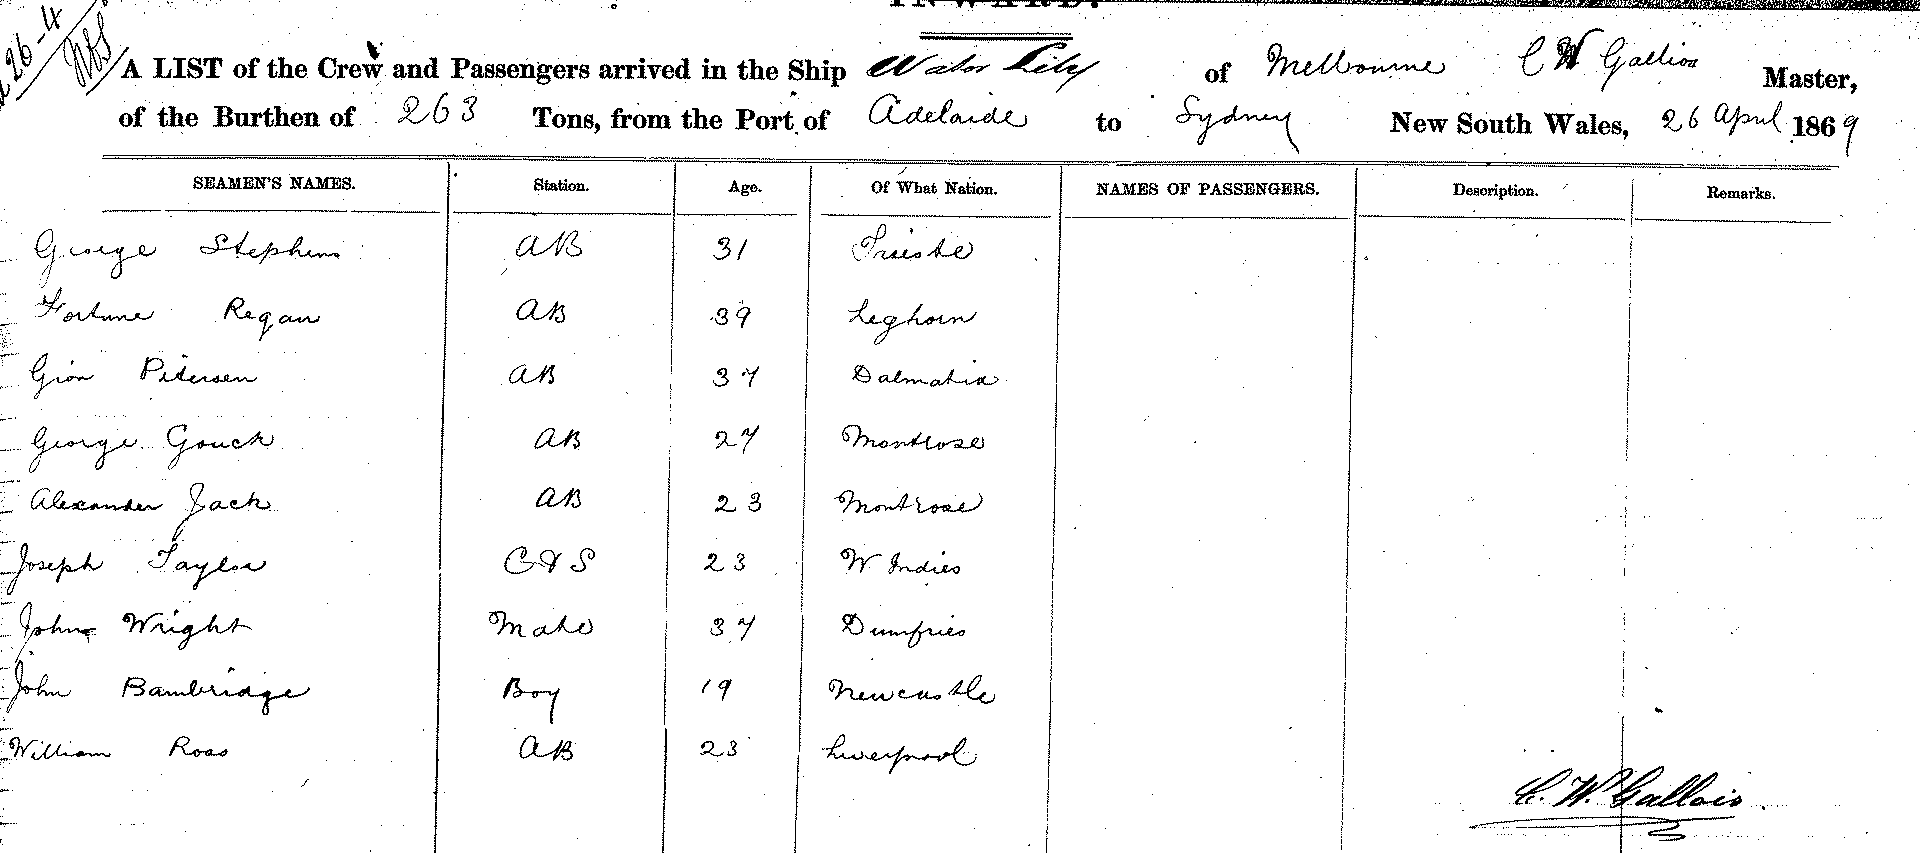 INWARD.
26-4
A LIST of the Crew and Passengers arrived in the Ship Water Lily of Melbourne C W Gallios Master,
of the Burthen of 263 Tons, from the Port of Adelaide to Sydney New South Wales, 26 April 1869
SEAMEN'S NAMES. Station. Age. Of What Nation. NAMES OF PASSENGERS. Description. Remarks.
George Stephens AB 31 Trieste
Fortune Regan AB 39 Leghorn
Gion Pitersen AB 37 Dalmatia
George Gouck AB 27 Montrose
Alexander Jack AB 23 Montrose
Joseph Taylor C & S 23 W Indies
John Wright Mate 37 Dumfries
John Bambridge Boy 19 Newcastle
William Ross AB 23 Liverpool
C. W. Gallois